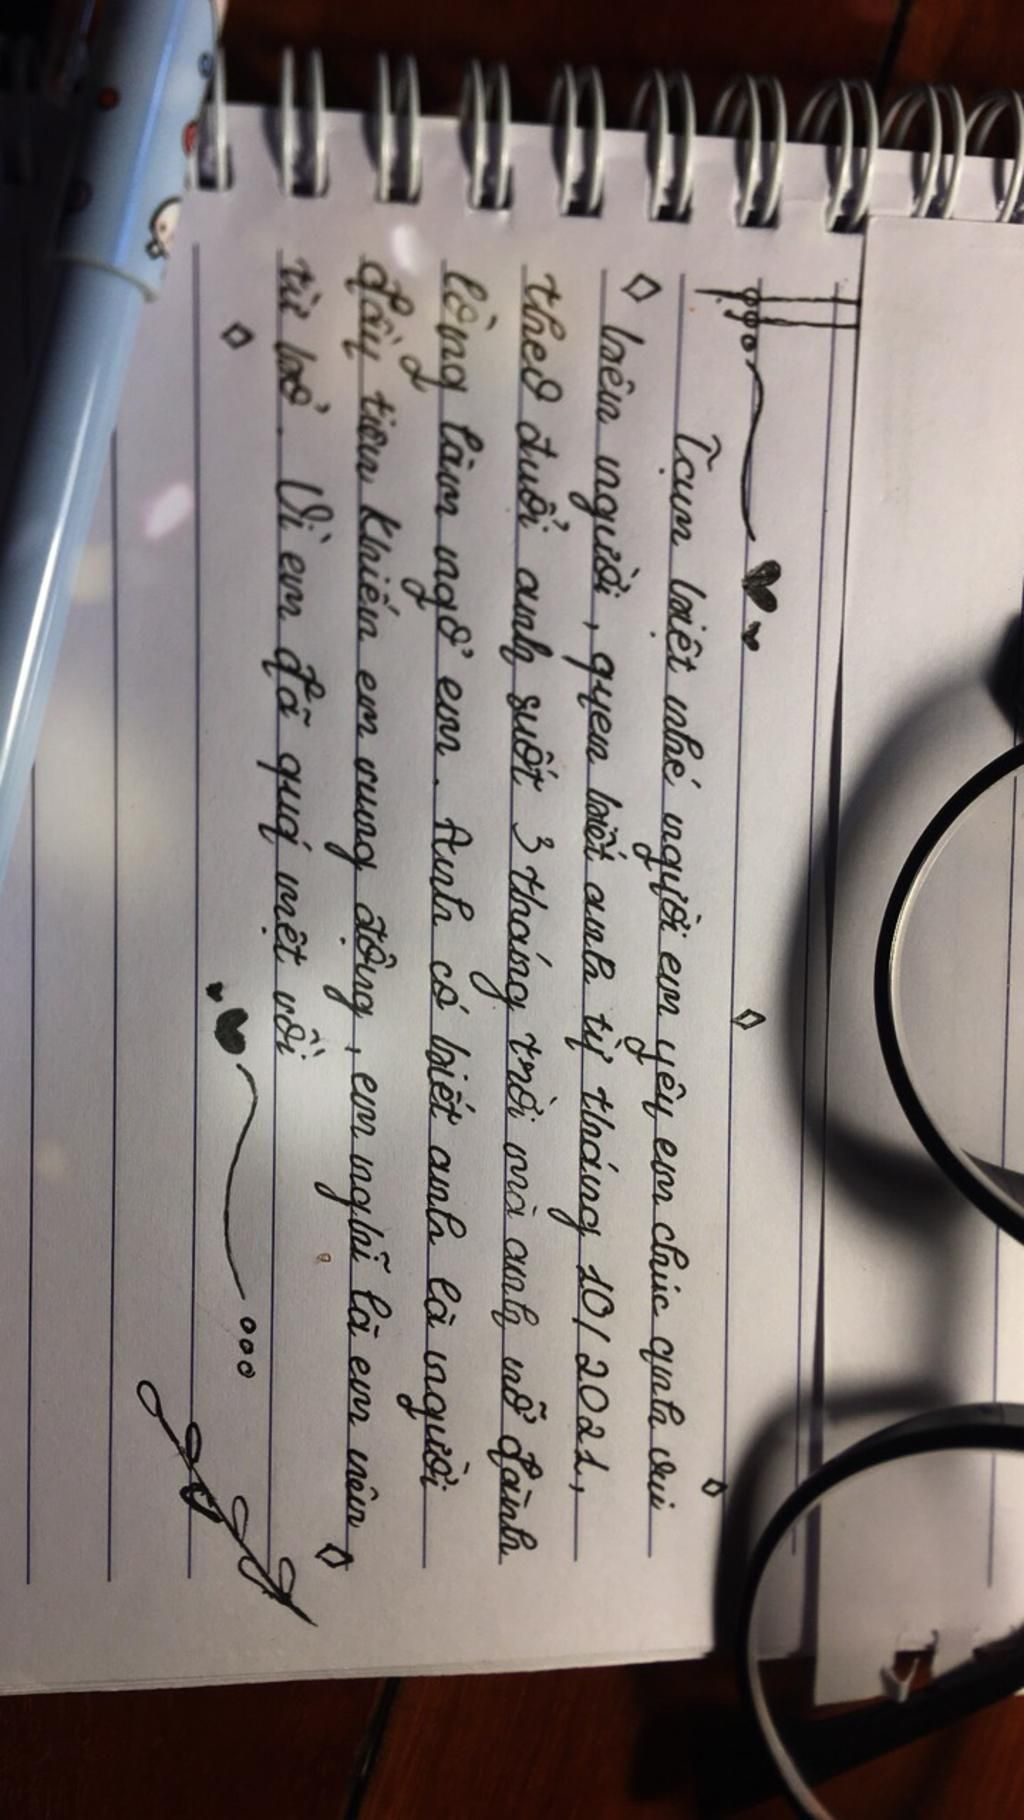 Tạm biệt nhé người em yêu em chúc anh vui
bên người, quen biết anh từ tháng 10/2021,
theo đuổi anh suốt 3 tháng trời mà anh nỡ đành
lòng làm ngơ em. Anh có biết anh là người
đầu tiên khiến em rung động, em nghĩ là em nên
từ bỏ. Vì em đã quá mệt rồi